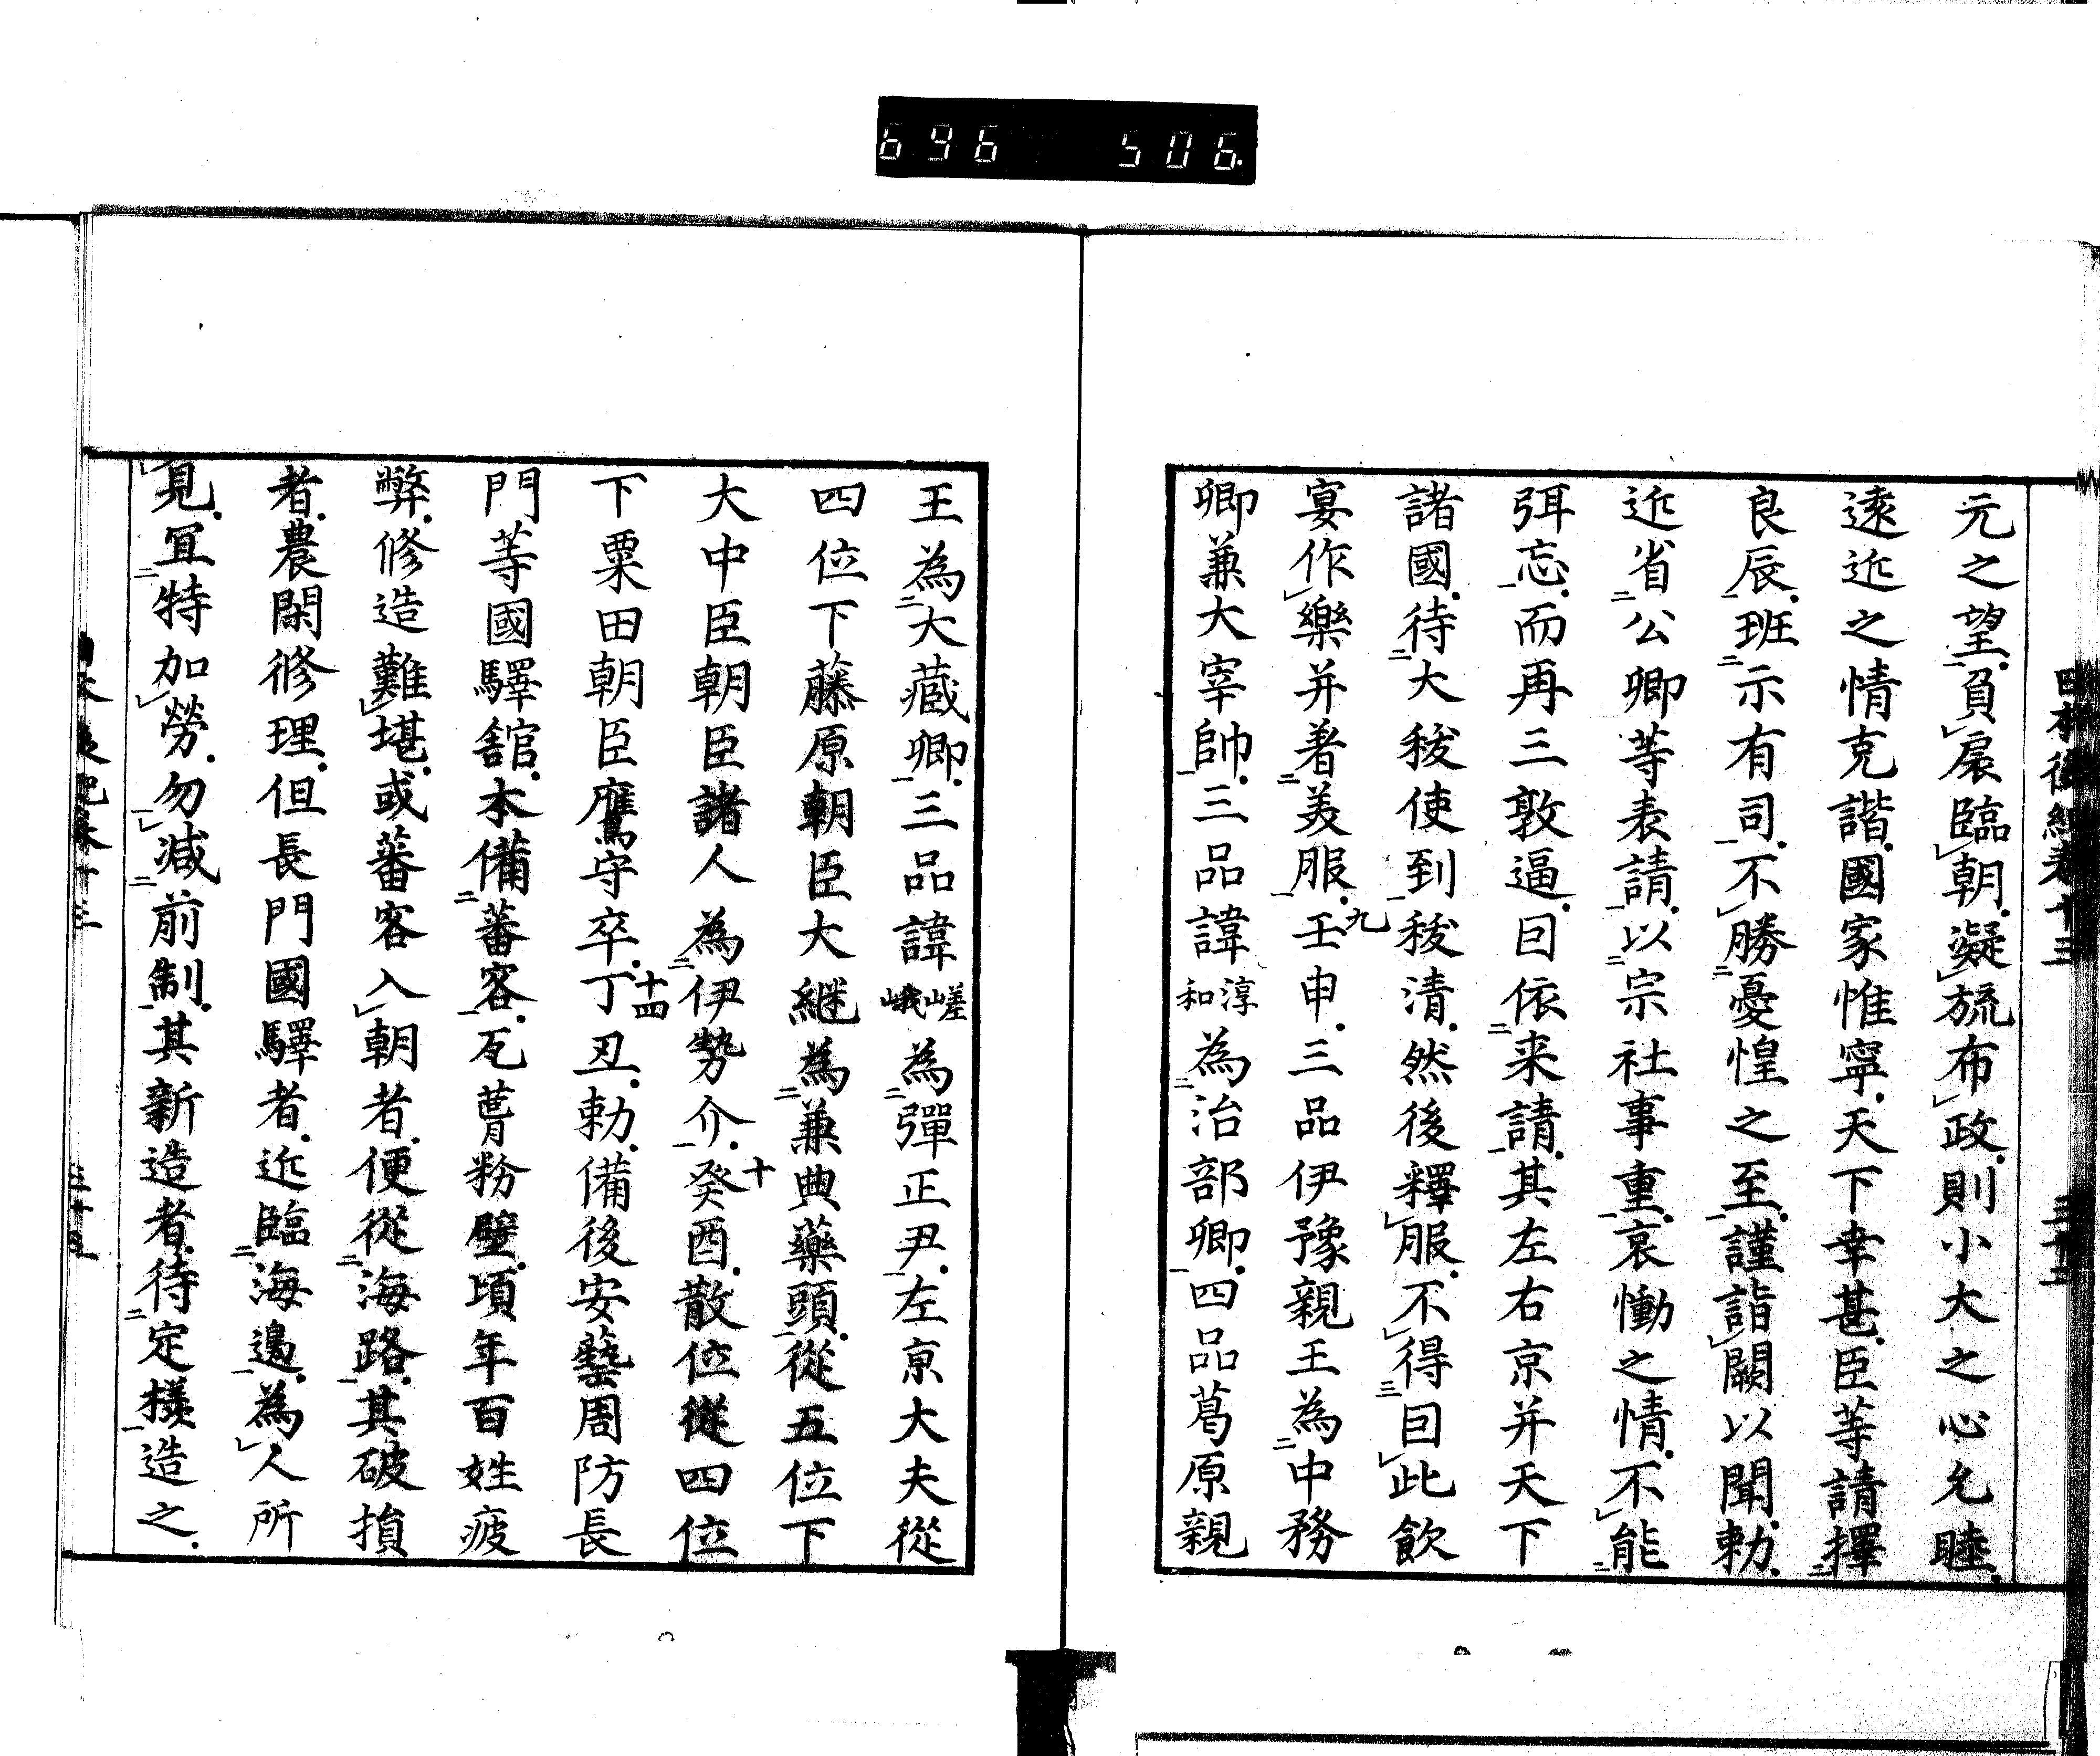 696 506
元之望負扆臨朝凝旒布政則小大之心允睦
遠近之情克諧國家惟寧天下幸甚臣等請擇
良辰班示有司不勝憂惶之至謹詣闕以聞勅
近省公卿等表請以宗社事重哀慟之情不能
弭忘而再三敦逼曰依来請其左右京并天下
諸國待大秡使到秡清然後釋服不得曰此飲
宴作樂并著美服九壬申三品伊豫親王為中務
卿兼大宰帥三品諱淳和為治部卿四品葛原親
王為大藏卿三品諱嵯峨為彈正尹左京大夫從
四位下藤原朝臣大継為兼典藥頭從五位下
大中臣朝臣諸人為伊勢介十癸酉散位從四位
下粟田朝臣鷹守卒十四丁丑勅備後安藝周防長
門等國驛舘本備蕃客瓦葺粉壁頃年百姓疲
弊修造難堪或蕃客入朝者便從海路其破損
者農閑修理但長門國驛者近臨海邊為人所
見冝特加勞勿减前制其新造者待定様造之